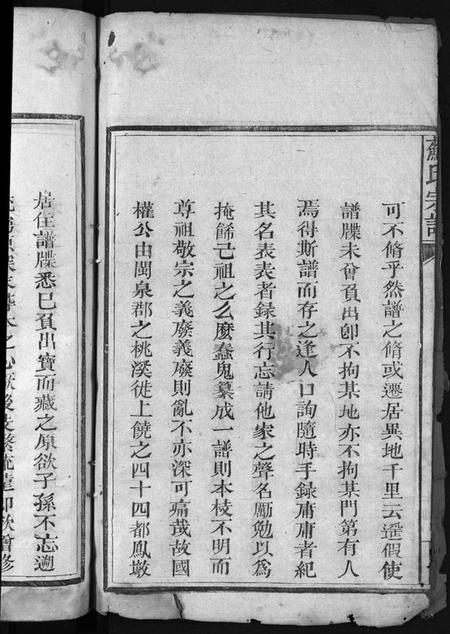 蘇氏宗譜
可不脩乎然譜之脩或遷居異地千里云遥假使
譜牒未曾負出卽不拘某地亦不拘某門第有人
焉得斯譜而存之逢人口詢隨時手録庸庸者紀
其名表表者録其行忘請他家之聲名勵勉以爲
掩餙己祖之么麽蠢鬼纂成一譜則本枝不明而
尊祖敬宗之義廢義廢則亂不亦深可痛哉故國
權公由閩泉郡之桃溪徙上饒之四十四都鳳墩
居住譜牒悉已負出寶而藏之原欲子孫不忘遡